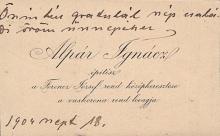 Őszintén gratulál szép családi öröm ünnepéhez
Alpár Ignácz
építész
a Ferencz József rend középkeresztese
a vaskorona rend lovagja
1904 sept 18.